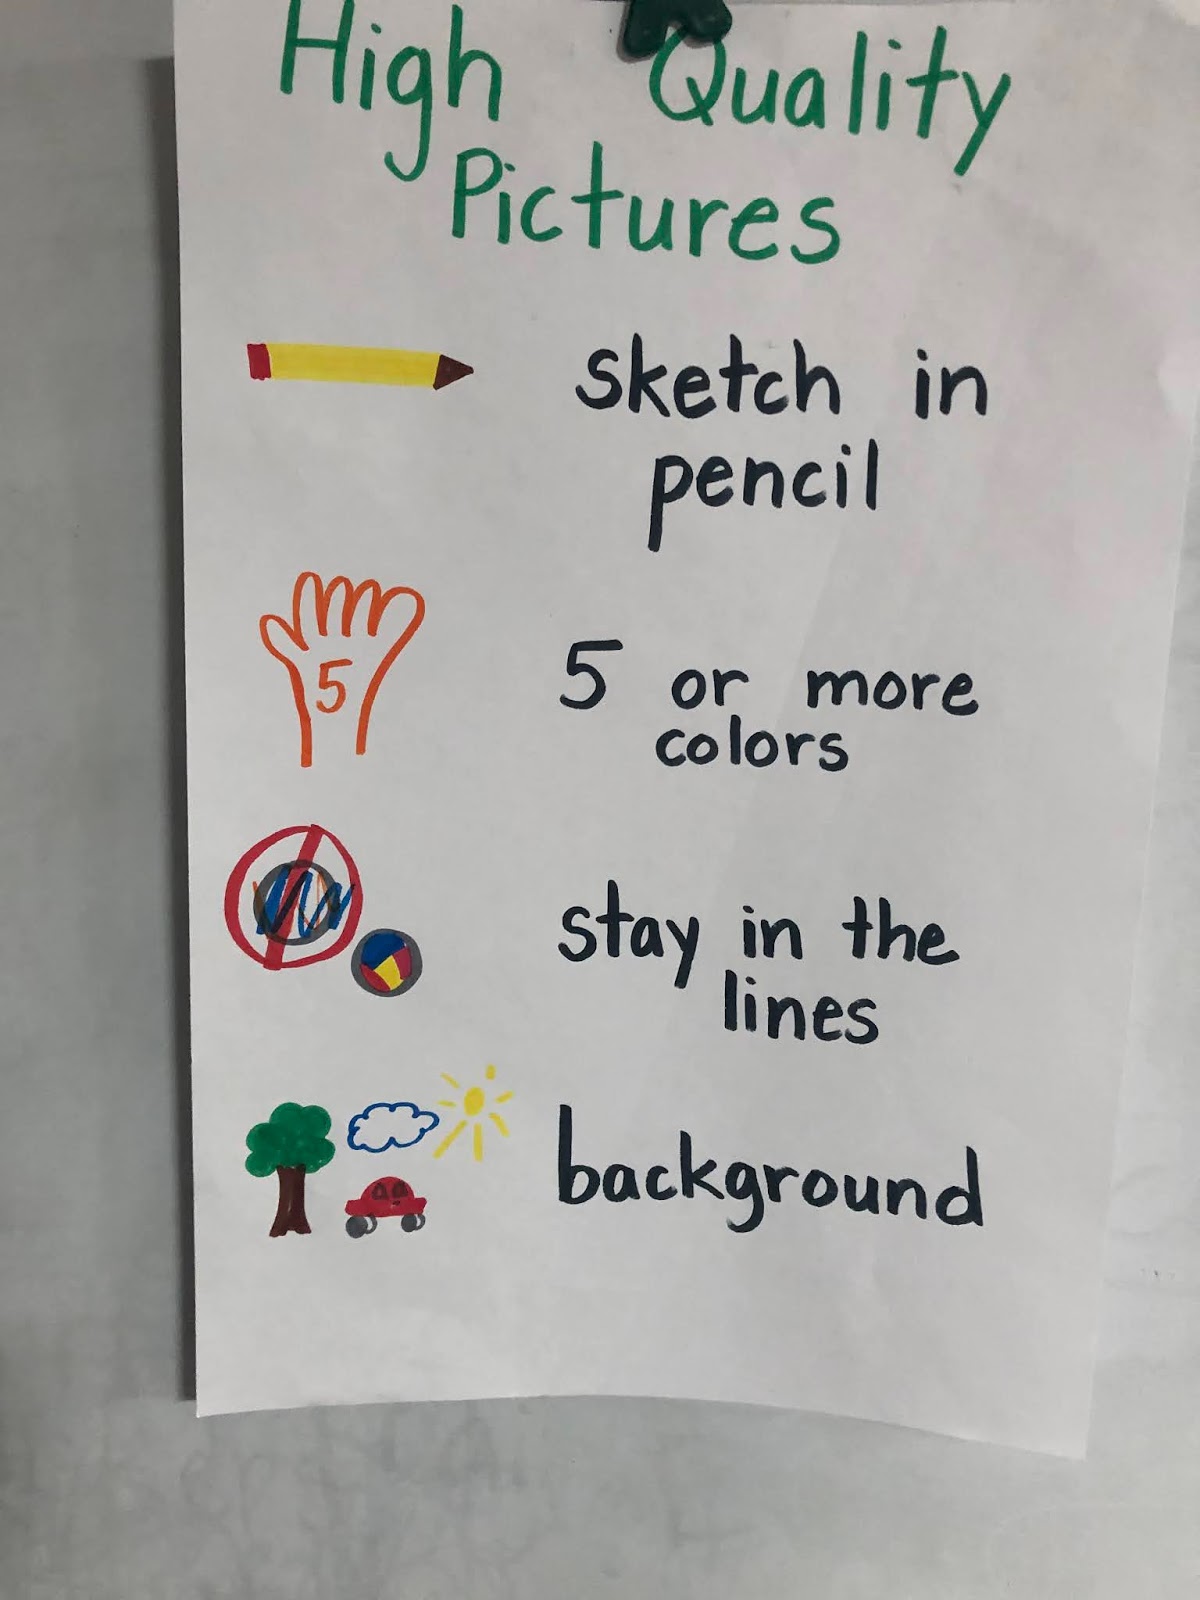 High Quality
Pictures
sketch in
pencil
5
5 or more
colors
stay in the
lines
background